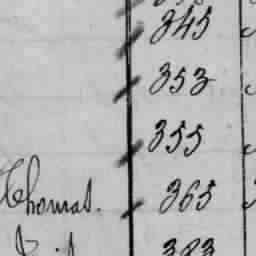 345
353
355
Thomas. 365
383